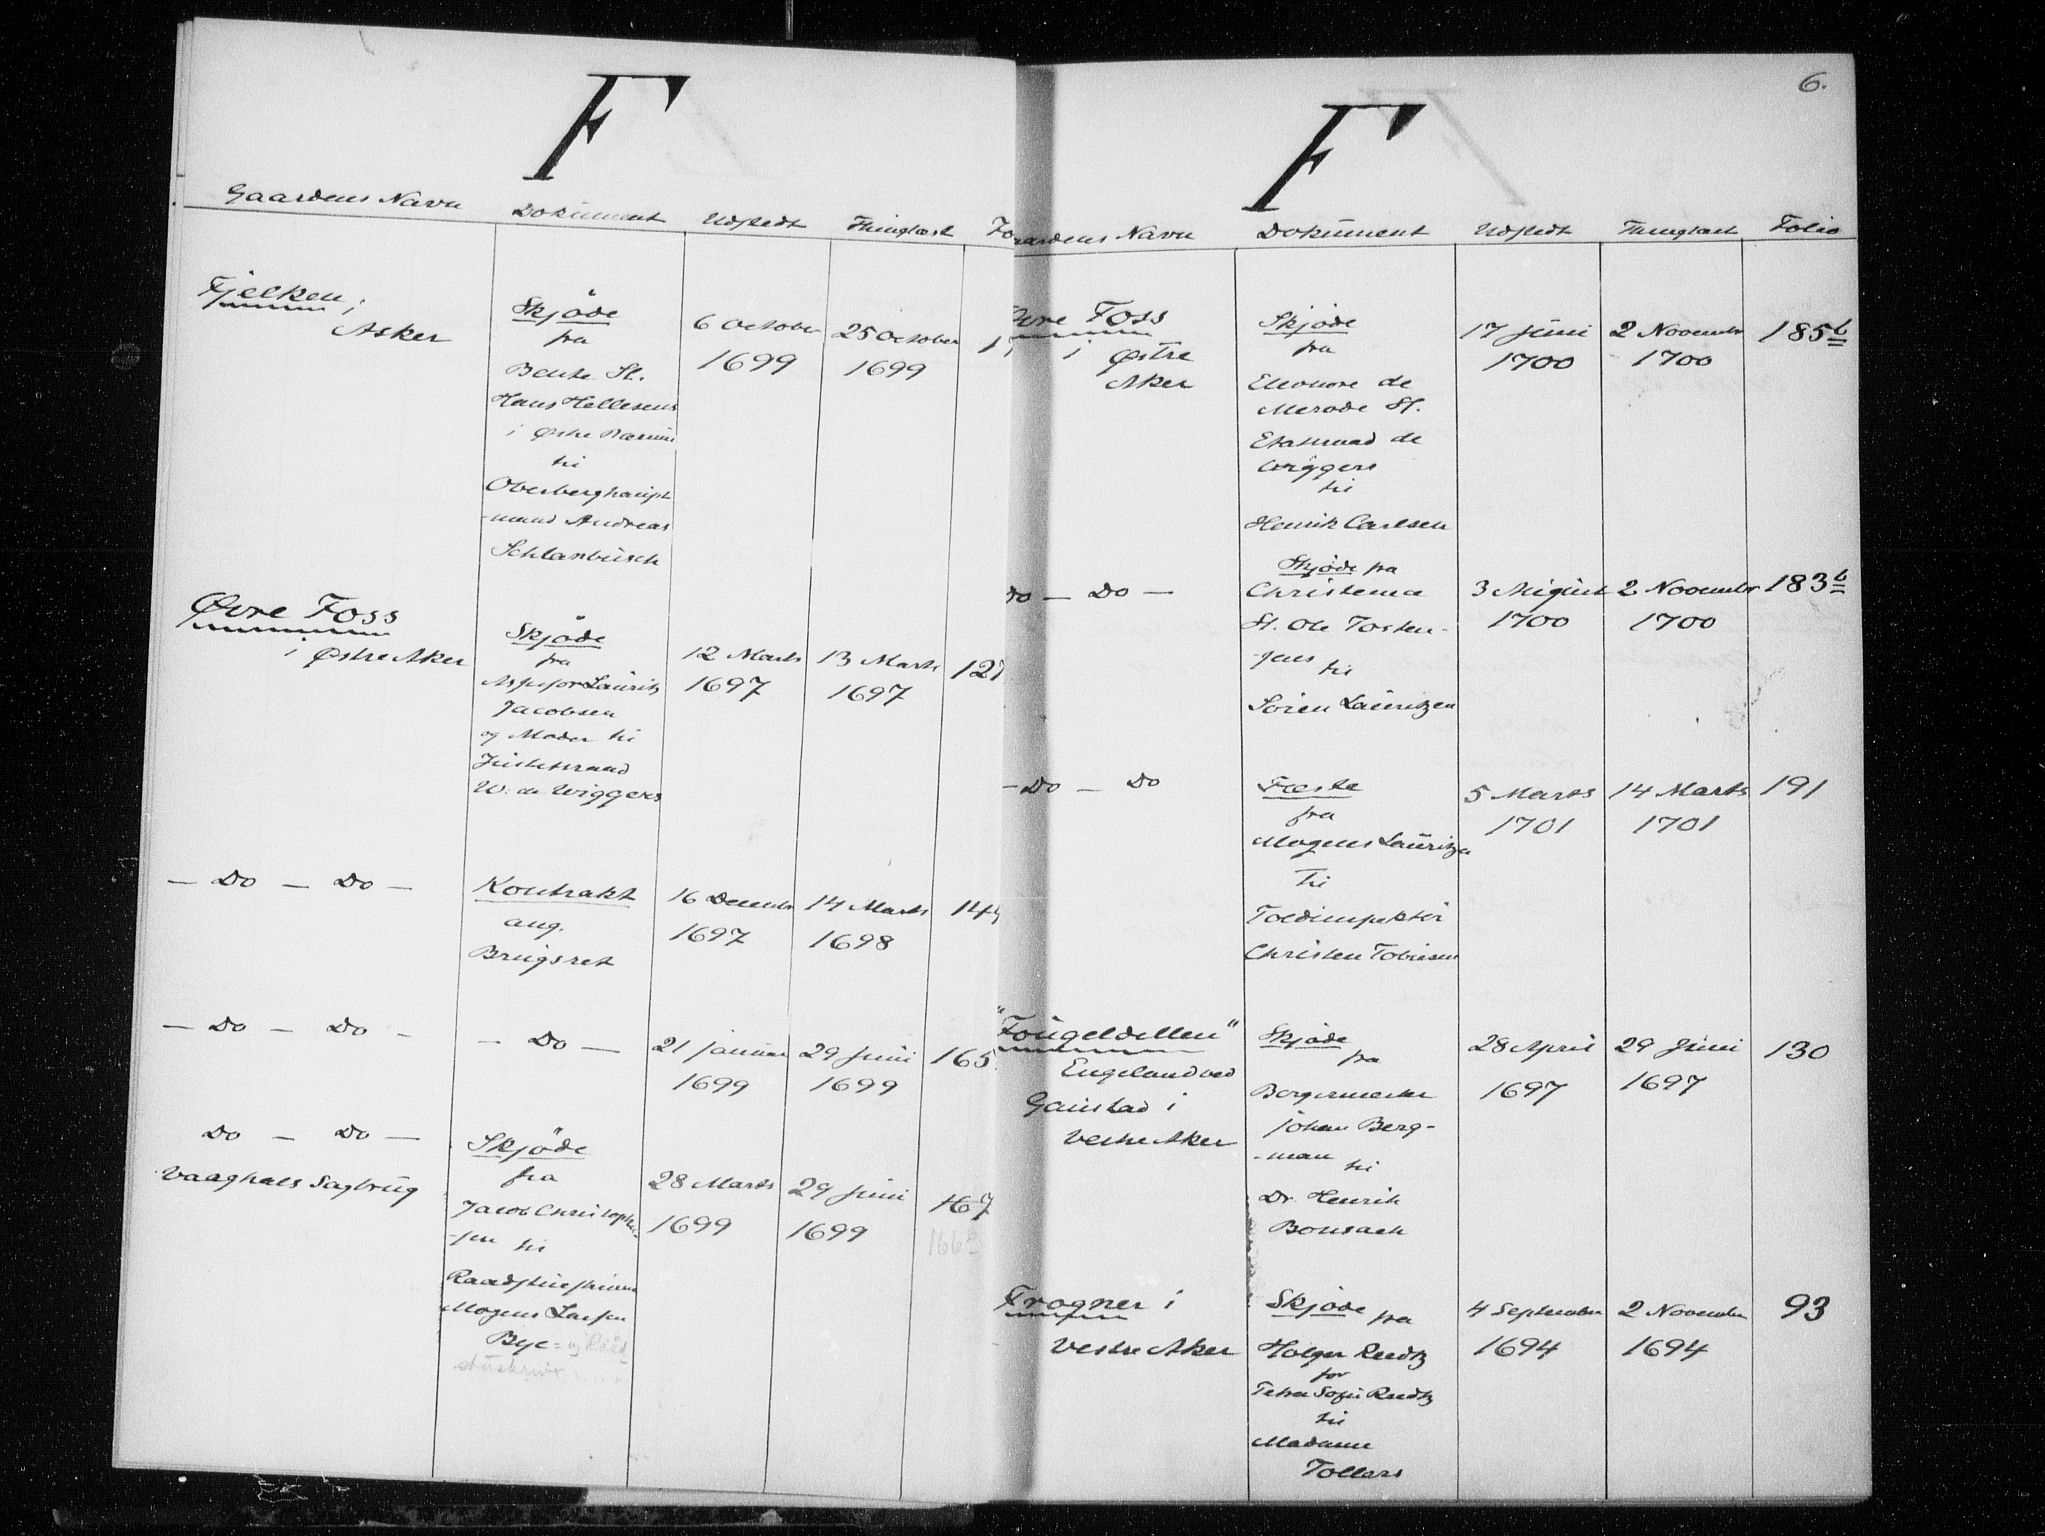 F
Gaardens Navn Dokument Udstedt Thinglæst Fo
Fjelken i
Asker
Skjøde
fra
Bente Sl.
Hans Hellesens
i Østre Bærum
til
Oberberghaupt
-mand Andreas
Schlanbusch
6 October
1699
25 October
1699
1
Øvre Foss
i Østre Aker
Skjøde
fra
Assessor Lauritz
Jacobsen
og Moder til
Justitsraad
W. de Wiggers
12 Marts
1697
13 Marts
1697
127
— Do — Do —
Kontrakt
ang.
Brugsret
16 Decembr
1697
14 Marts
1698
144
— Do — Do —
— Do —
21 Januar
1699
29 Juni
1699
165
Do — Do —
Vaaghals Sagbrug
Skjøde
fra
Jacob Christophe-
-sen til
Raadstueskriver
Mogens Larsen
Bye = og Raad
stueskriver
28 Marts
1699
29 Juni
1699
167
166 b
6.
F
aardens Navn Dokument Udstedt Thinglæst Folio
Øvre Foss
i Østre
Aker
Skjøde
fra
Eleonore de
Merode Sl.
Etatsraad de
Wiggers
til
Henrik Carlsen
17 Juni
1700
2 Novembr
1700
185 b
Do — Do —
Skjøde fra
Christense
Sl. Ole Tosten-
-sens til
Søren Lauritzen
3 August
1700
2 Novembr
1700
183 b
— Do — Do
Fæste
fra
Mogens Lauritzen
til
Toldinspektør
Christen Tobiesen
5 Marts
1701
14 Marts
1701
191
"Fougeldellen"
Engeland ved
Gaustad i
Vestre Aker
Skjøde
fra
Borgermester
Johan Berg-
-man til
Dr. Henrik
Bonsach
28 April
1697
29 Juni
1697
130
Frogner i
Vestre Aker
Skjøde fra
Holger Reedtz
for
Petra Sofie Reedtz
til
Madame
Tollers
4 September
1694
2 November
1694
93